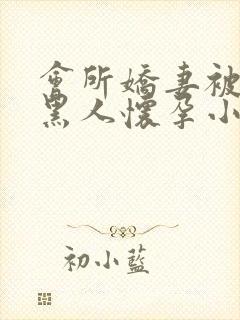 會所嬌妻被
黑人懷孕小
初小藍